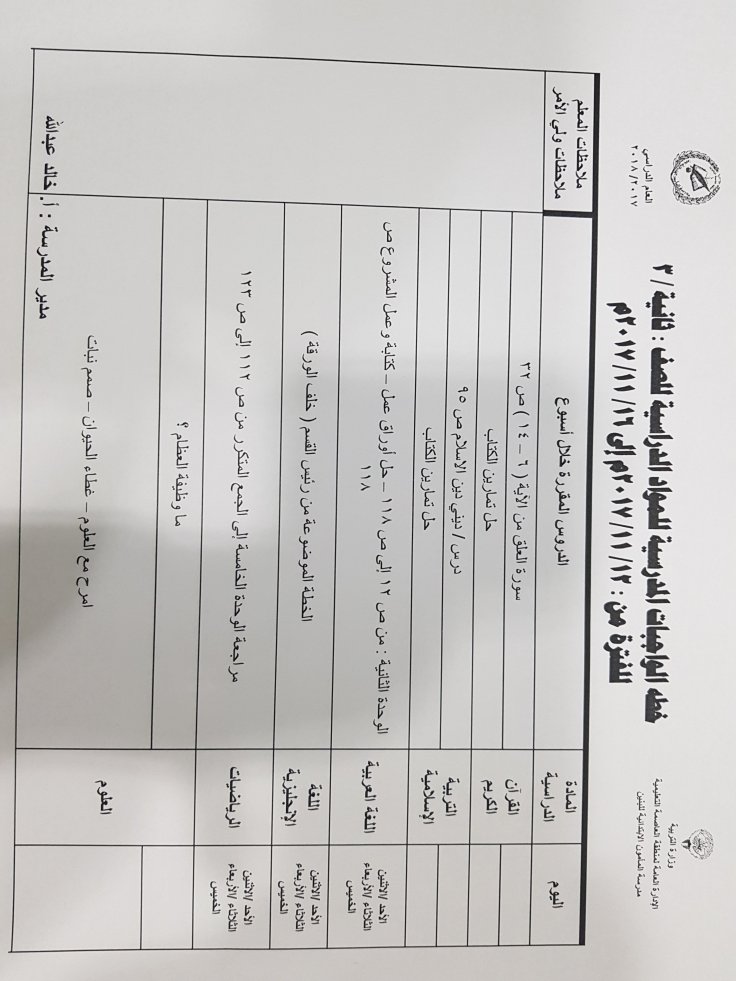 وزارة التربية
الإدارة العامة لمنطقة العاصمة التعليمية
مدرسة المأمون الابتدائية للبنين
خطه الواجبات المدرسية للمواد الدراسية للصف : ثانية / ٣
للفترة من : ١٢ / ١١ / ٢٠١٧م إلى ١٦ / ١١ / ٢٠١٧م
العام الدراسي
٢٠١٨/٢٠١٧
اليوم
المادة الدراسية
الدروس المقررة خلال أسبوع
ملاحظات المعلم
ملاحظات ولي الأمر
القرآن الكريم
سورة العلق من الآية ( ٦ – ١٤ ) ص ٣٢
حل تمارين الكتاب
التربية الإسلامية
درس / ديني دين الاسلام ص ٩٥
حل تمارين الكتاب
الأحد /الاثنين
الثلاثاء /الأربعاء
الخميس
اللغة العربية
الوحدة الثانية : من ص ١٢ إلى ص ١١٨ – حل أوراق عمل – كتابة و عمل المشروع ص
١١٨
الأحد /الاثنين
الثلاثاء /الأربعاء
الخميس
اللغة الإنجليزية
الخطة الموضوعة من رئيس القسم ( خلف الورقة )
الأحد /الاثنين
الثلاثاء /الأربعاء
الخميس
الرياضيات
مراجعة الوحدة الخامسة إلى الجمع المتكرر من ص ١١٢ إلى ص ١٢٣
العلوم
ما وظيفة العظام ؟
امرح مع العلوم – غطاء الحيوان – صمم نبات
مدير المدرسة : أ. خالد عبدالله